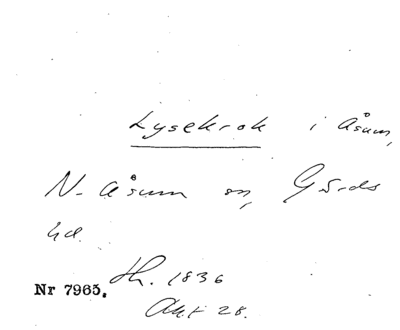 Lysekrok i Åsum,
N. Åsum sn, Gärds
hd.
Nr 7965. Th. 1836
Akt 28.